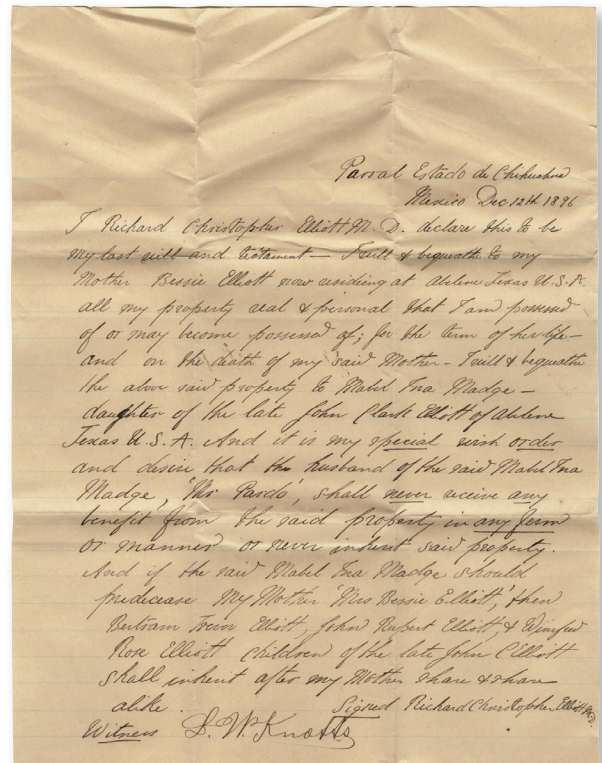 Parral Estado de Chihuahua
Mexico Dec 12th 1896
I Richard Christopher Elliott M. D. declare this to be
my last will and testament — I will & bequeathe to my
Mother Bessie Elliott now residing at Abilene Texas U.S.A.
all my property real & personal that I am possessed
of or may become possessed of; for the term of her life –
and on the death of my said Mother – I will & bequeathe
the above said property to Mabel Ina Madge –
daughter of the late John Clark Elliott of Abilene
Texas U.S.A. And it is my special wish order
and desire that the husband of the said Mabel Ina
Madge, 'Mr Pardo', shall never receive any
benefit from the said property in any form
or manner or never inherit said property.
And if the said Mabel Ina Madge should
predecease my Mother 'Mrs Bessie Elliott', then
Bertram Elliott, John Rupert Elliott, & Winifred
Rose Elliott children of the late John C Elliott
shall inherit after my Mother share & share
alike. Signed Richard Christopher Elliott M.D.
Witness S. W. Knotts